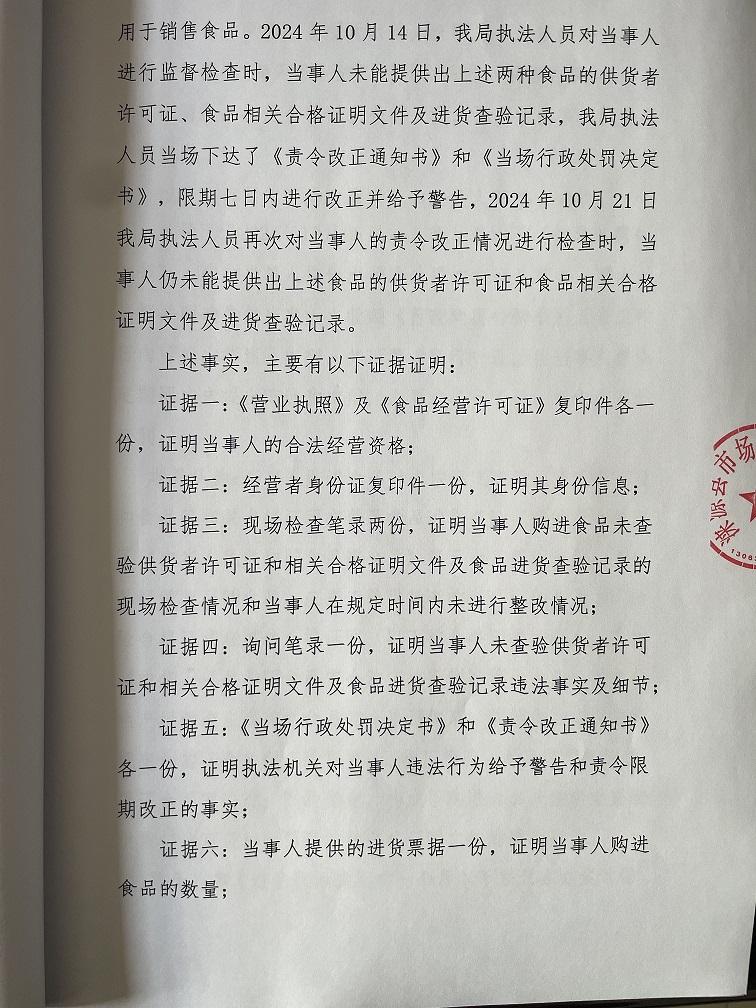 用于销售食品。2024 年 10 月 14 日，我局执法人员对当事人
进行监督检查时，当事人未能提供出上述两种食品的供货者
许可证、食品相关合格证明文件及进货查验记录，我局执法
人员当场下达了《责令改正通知书》和《当场行政处罚决定
书》，限期七日内进行改正并给予警告，2024 年 10 月 21 日
我局执法人员再次对当事人的责令改正情况进行检查时，当
事人仍未能提供出上述食品的供货者许可证和食品相关合格
证明文件及进货查验记录。
上述事实，主要有以下证据证明：
证据一：《营业执照》及《食品经营许可证》复印件各一
份，证明当事人的合法经营资格；
证据二：经营者身份证复印件一份，证明其身份信息；
证据三：现场检查笔录两份，证明当事人购进食品未查
验供货者许可证和相关合格证明文件及食品进货查验记录的
现场检查情况和当事人在规定时间内未进行整改情况；
证据四：询问笔录一份，证明当事人未查验供货者许可
证和相关合格证明文件及食品进货查验记录违法事实及细节；
证据五：《当场行政处罚决定书》和《责令改正通知书》
各一份，证明执法机关对当事人违法行为给予警告和责令限
期改正的事实；
证据六：当事人提供的进货票据一份，证明当事人购进
食品的数量；
涞源县市场
1306